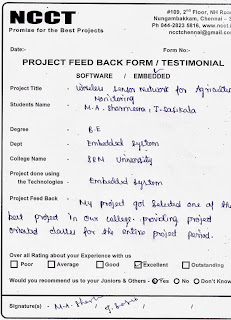 NCCT
Promise for the Best Projects
#109, 2nd Floor, NH Road
Nungambakkam, Chennai - 3
Ph 044-2823 5816, www.ncct
ncctchennai@gmail.com
Date:-
Form No:-
PROJECT FEED BACK FORM / TESTIMONIAL
SOFTWARE / EMBEDDED
Project Title - Wireless Sensor Network for Agriculture
Monitoring
Students Name M.A. Sharmeera, J. Sasikala
Degree B.E
Dept Embedded System
College Name SRM University
Project done using
the Technologies - Embedded System
Project Feed Back - My project got Selected one of the
best project in our college. providing project
oriented classes for the entire project period.
Over all Rating about your Experience with us
Poor Average Good Excellent Outstanding
Would you recommend us to your Juniors & Others - Yes No Don't Know
Signature(s) -